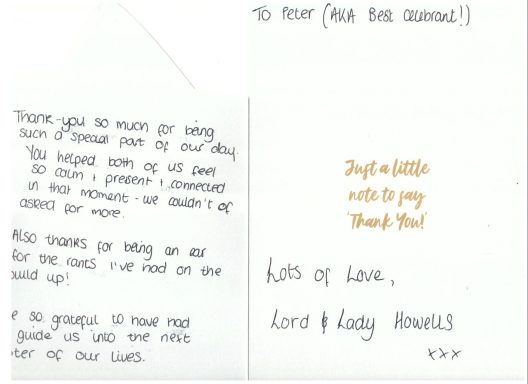 Thank-you so much for being
such a special part of our day.
You helped both of us feel
so calm + present + connected
in that moment - we couldn't of
asked for more.
Also thanks for being an ear
for the rants I've had on the
uild up!
e so grateful to have had
guide us into the next
ter of our lives.
To Peter (AKA Best Celebrant!)
Just a little
note to say
'Thank You!'
Lots of Love,
Lord & Lady Howells
xxx